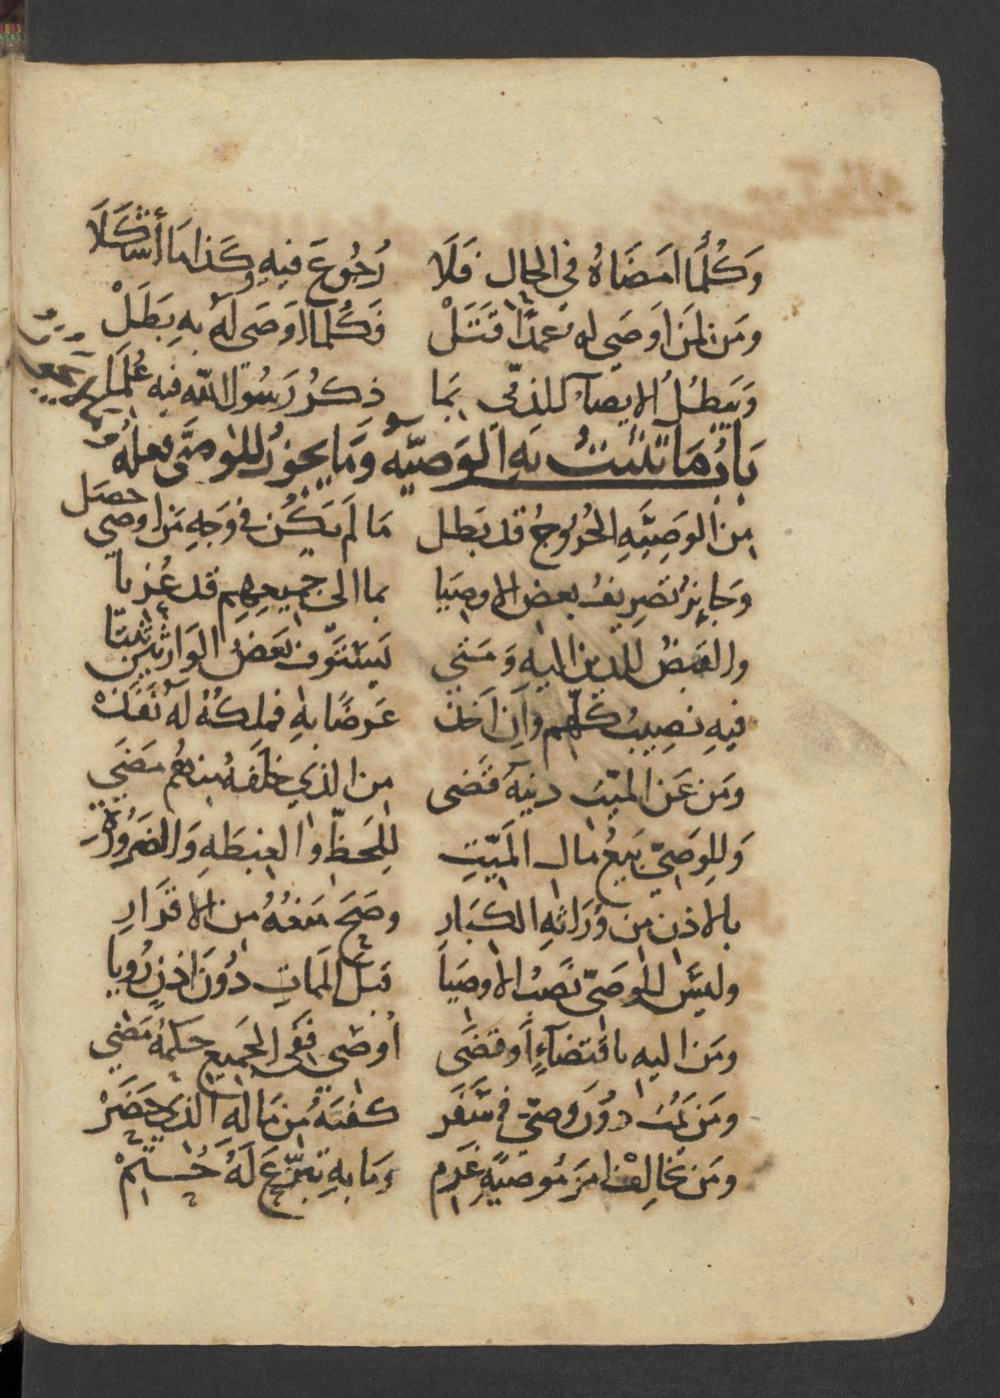 وَكُلَّمَا امضَاهُ في الحال فَلَا رُجُوعَ فيهِ وكَذا مَا أشكَلَا
ومَن لمَن اوصَى له تعمدًا قَتَلْ فكُلما اوصَى لَهُ بهِ بَطَلْ
وَيَبطُلُ الايصآ للذمّى بمَا ذكرُ رَسُول الله فيهِ عُلمَا
بَابُ مَا تثبتُ بهِ الوَصيّة وَمَا يجوزُ للموصَّى فعلهُ
من الوَصِيَّةِ الخرُوجُ قد بَطل مَا لَم يَكُن في وَجهِ مَن اوصى حصَل
وَجايزٌ تصريفُ بعض الاوصيَا بما الى جميعِهم قد عُزيَا
والقبضُ للدين اليه وَمتى يَستَوفِ بَعضُ الوارثين ثبتَا
فيهِ نصِيبُ كلّهم وَاِن اَخذ عَوضًا بهِ فملكهُ لَهُ نَفَذْ
ومَن عَن الميّت دينهَ قضَى من الذي خلفهُ منهُم مضَى
وَللوصِيّ بَيعُ مال المَيّتِ للحَظّ والغبطَهِ وَالضرُورَةِ
بالاذن من وُرَّاثهِ الكبَارِ وصَحَ منعُهُ من الاقرَارِ
وليسَ للموصَىّ نَصبُ الاوصيَا قبلَ المَمات دُونَ اذنٍ رُويا
ومَن اليه باقتضآءٍ اَو قضَى أوصَى ففى الجَميع حكمُهُ مَضى
ومَن يَمُت دوُنَ وصىّ في سَفَر كفنَهُ من مَاله الذي حَضَرْ
ومَن يخالِف امرَ مُوصيهِ غَرِم وَمَا بهِ تبرّعَ لَهُ حُتِمْ